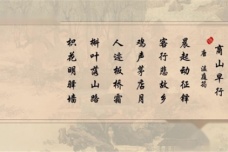 商山早行
唐 温庭筠
晨起动征铎
客行悲故乡
鸡声茅店月
人迹板桥霜
槲叶落山路
枳花明驿墙